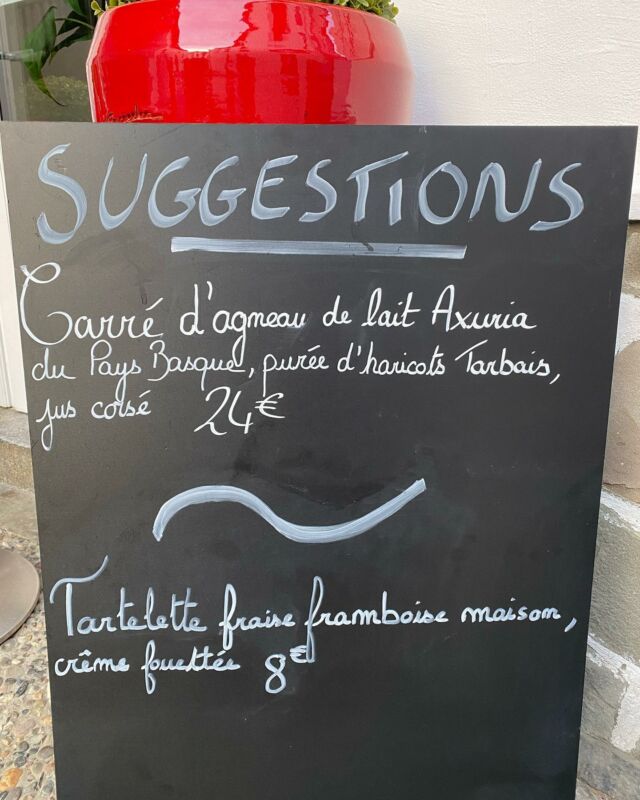 SUGGESTIONS
Carré d'agneau de lait Axuria
du Pays Basque, purée d'haricots Tarbais,
jus corsé 24€
Tartelette fraise framboise maison,
crême fouettée 8€